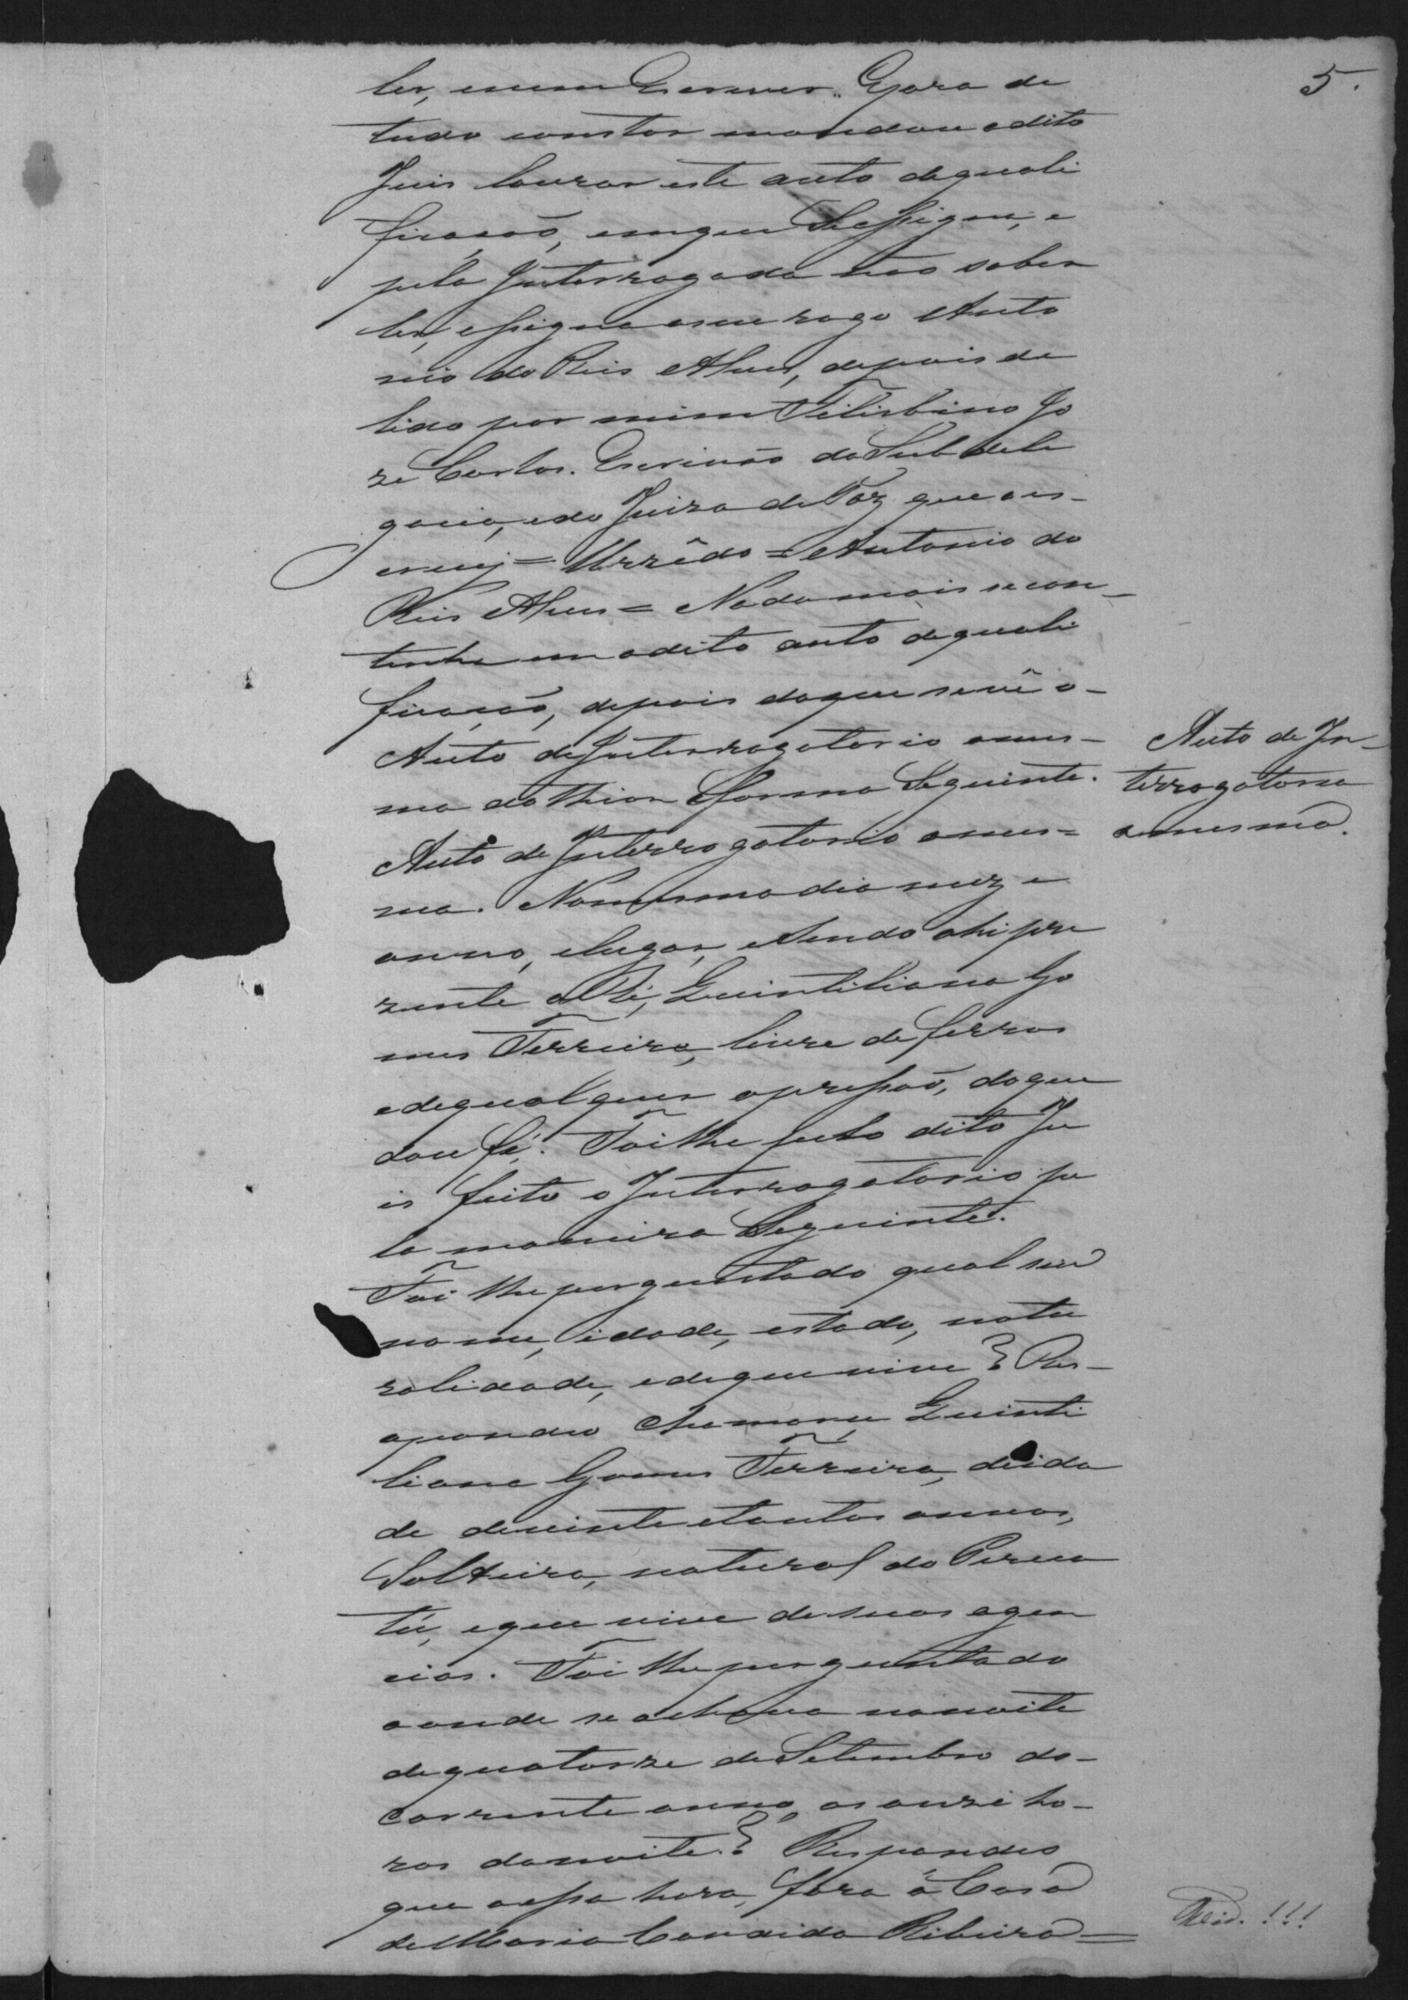 5.
ler, nem Escrever. E para de
tudo constar mandou o dito
Juis lavrar este auto de quali
ficação, em que Se assigna, e
pela Interrogada não saber
ler, assigna a seu rogo Anto
nio do Reis Alves, depois de
lido por mim Felisbino Jo
ze Carlos. Escrivão da Subdele
gacia, e do Juizo de Paz que o es-
crevi = Urzêdo = Antonio do
Reis Alves = Nada mais se con-
tinha em o dito auto de quali
ficação, depois do que se vê o-
Auto de Interrogatorio a mes-
ma do theor e forma Seguinte.
Auto de In-
terrogatorio
a mesma.
Auto de Interrogatorio a mes=
ma. No mesmo dia mez e
anno, e lugar, e sendo ahi pre
zente a Ré, Quintiliana Go
mes Ferreira, livre de ferros
e de qualquer apressaõ, do que
dou fé. Foi lhe pelo dito Ju
is feito o Interrogatorio pe
la maneira Seguinte.
Foi lhe perguntado qual seu
nome, idade, estado, natu
ralidade, e de que vive? Res-
pondeo chamarse Quinti
liana Gomes Ferreira, de ida
de de vinte e tantos annos,
Solteira, natural do
e que vive de suas agen
cias. Foi lhe perguntado
aonde se achava na noite
de quatorze de Setembro do-
corrente anno, as onze ho-
ras da noite? Respondeo
que a essa hora, fora á Casa
de Maria Candida Ribeiro =
!!!